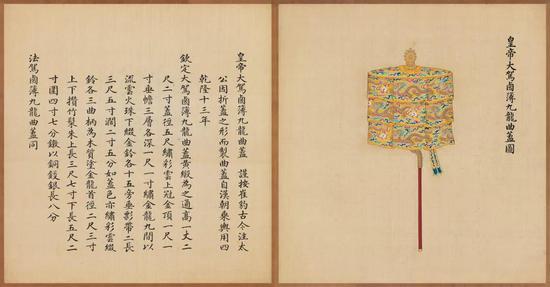 皇帝大駕鹵簿九龍曲蓋圖
皇帝大駕鹵簿九龍曲蓋 謹按崔豹古今注太
公因折蓋之形而製曲蓋自漢朝乘輿用四
乾隆十三年
欽定大駕鹵簿九龍曲蓋黃緞為之通高一丈二
尺二寸蓋徑五尺繡彩雲上冠金頂一尺一
寸垂幨三層各深一尺一寸繡金龍九間以
流雲火珠下綴金鈴各十五旁垂影帶二長
三尺五寸濶二寸五分如蓋色亦繡彩雲綴
鈴各三曲柄為木質塗金龍首徑二尺三寸
上下攢竹髹朱上長三尺七寸下長五尺二
寸圍四寸七分鐓以銅鋄銀長八分
法駕鹵簿九龍曲蓋同